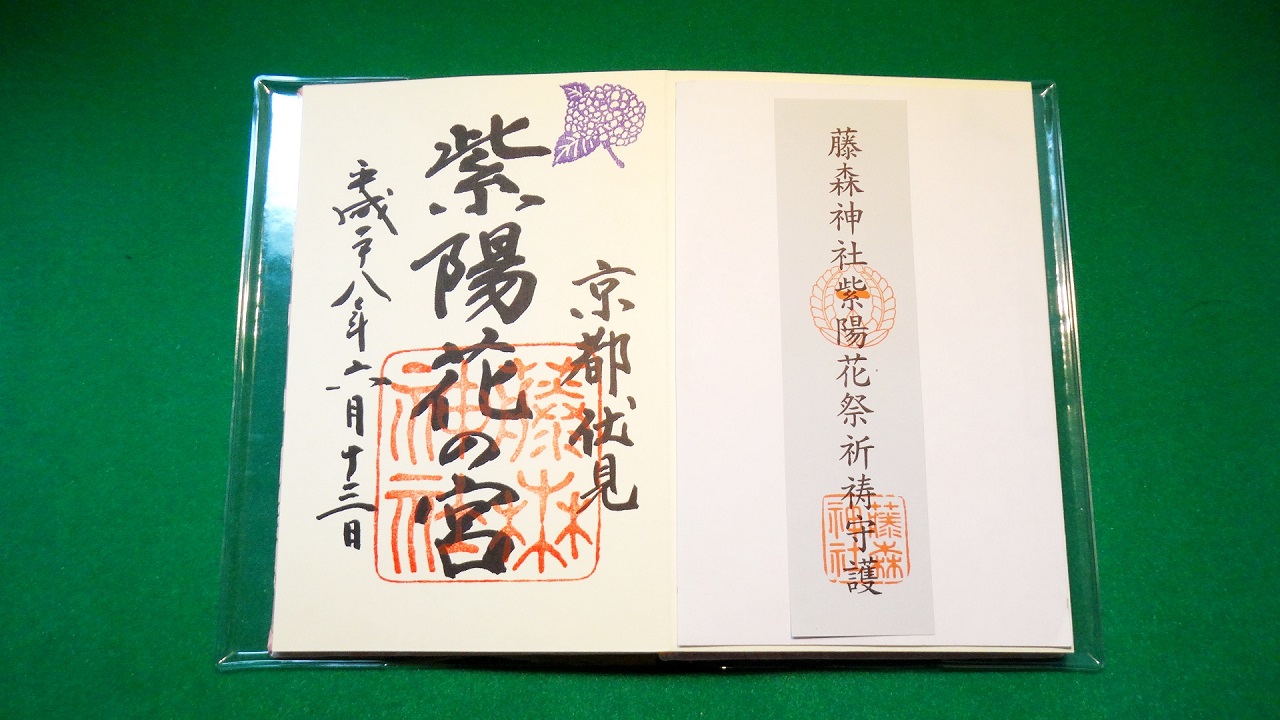 藤森神社紫陽花祭祈祷守護
藤森
神社
京都伏見
紫陽花の宮
藤森
神社
平成二十八年六月十三日